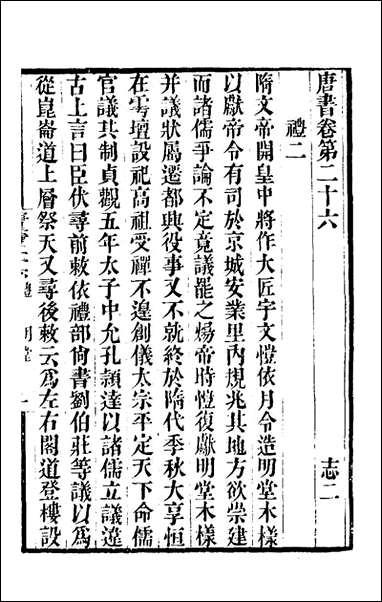 唐書卷第二十六　志二
禮二
隋文帝開皇中將作大匠宇文愷依月令造明堂木樣
以獻帝令有司於京城安業里內規兆其地方欲崇建
而諸儒爭論不定竟議罷之煬帝時愷復獻明堂木樣
并議狀屬遷都興役事又不就終於隋代季秋大享恒
在雩壇設祀高祖受禪不遑創儀太宗平定天下命儒
官議其制貞觀五年太子中允孔穎達以諸儒立議違
古上言曰臣伏尋前敕依禮部尚書劉伯莊等議以為
從崑崙道上層祭天又尋後敕云為左右閣道登樓設